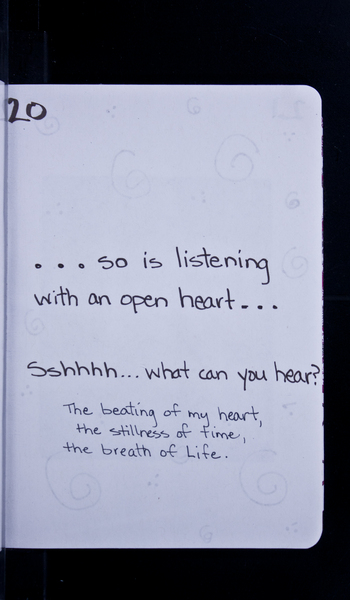 20
. . . so is listening
with an open heart...
Sshhhh... what can you hear?
The beating of my heart,
the stillness of time,
the breath of Life.